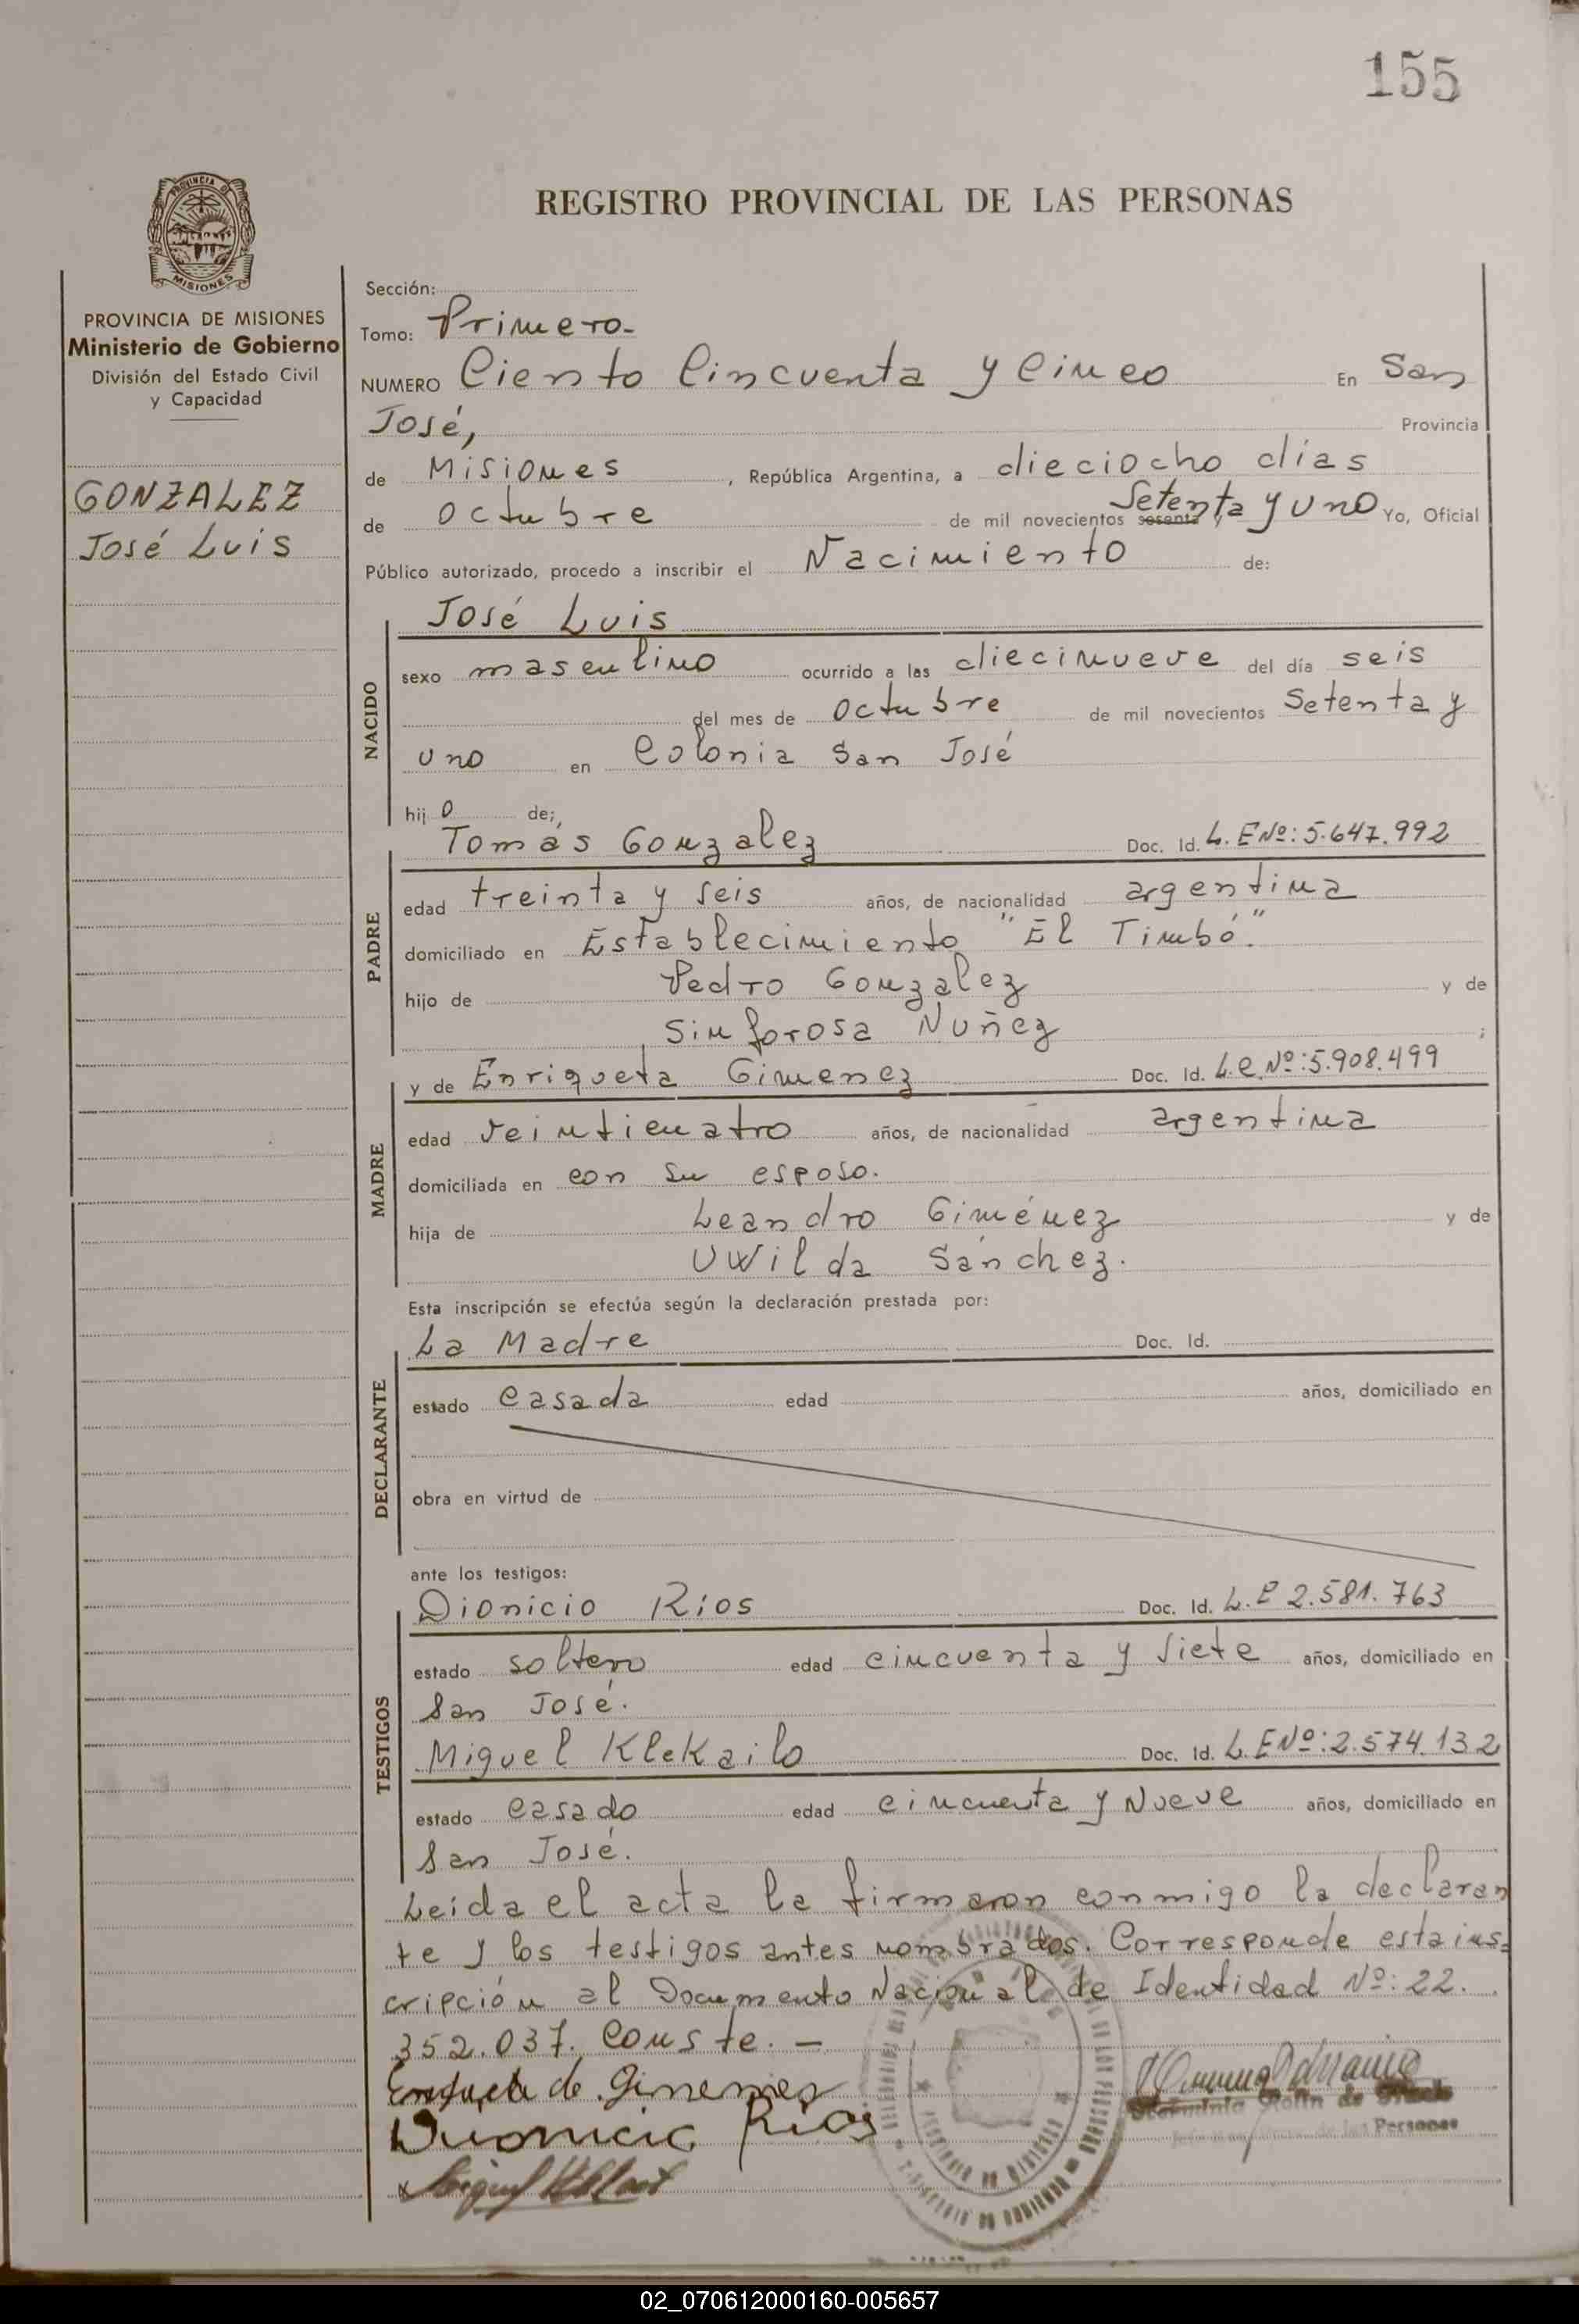 155
REGISTRO PROVINCIAL DE LAS PERSONAS
PROVINCIA DE MISIONES
PROVINCIA DE MISIONES
Ministerio de Gobierno
División del Estado Civil
y Capacidad
GONZALEZ
José Luis
Sección:
Tomo: Primero-
NUMERO Ciento Cincuenta y Cinco En San
José, Provincia
de Misiones, República Argentina, a dieciocho días
de Octubre de mil novecientos sesenta y Setenta y uno Yo, Oficial
Público autorizado, procedo a inscribir el Nacimiento de:
NACIDO
José Luis
sexo masculino ocurrido a las diecinueve del día seis
del mes de Octubre de mil novecientos Setenta y
uno en Colonia San José
hijo de;
PADRE
Tomás Gonzalez Doc. Id. L.E Nº: 5.647.992
edad treinta y seis años, de nacionalidad argentina
domiciliado en Establecimiento "El Timbó."
hijo de Pedro Gonzalez y de
Sinforosa Nuñez ;
MADRE
y de Enriqueta Gimenez Doc. Id. L.C. Nº: 5.908.499
edad veinticuatro años, de nacionalidad argentina
domiciliada en con su esposo.
hija de Leandro Giménez y de
Uwilda Sánchez.
Esta inscripción se efectúa según la declaración prestada por:
DECLARANTE
La Madre Doc. Id.
estado casada edad años, domiciliado en
obra en virtud de
ante los testigos:
TESTIGOS
Dionicio Ríos Doc. Id. L.E 2.581.763
estado soltero edad cincuenta y siete años, domiciliado en
San José.
Miguel Klekailo Doc. Id. L.E Nº: 2.574.132
estado casado edad cincuenta y Nueve años, domiciliado en
San José.
Leída el acta la firmaron conmigo la declaran
te y los testigos antes nombrados. Corresponde esta ins=
cripción al Documento Nacional de Identidad Nº: 22.
352.037. Conste. —
de Gimenez
Dionicio Rios
de las Personas
02_070612000160-005657